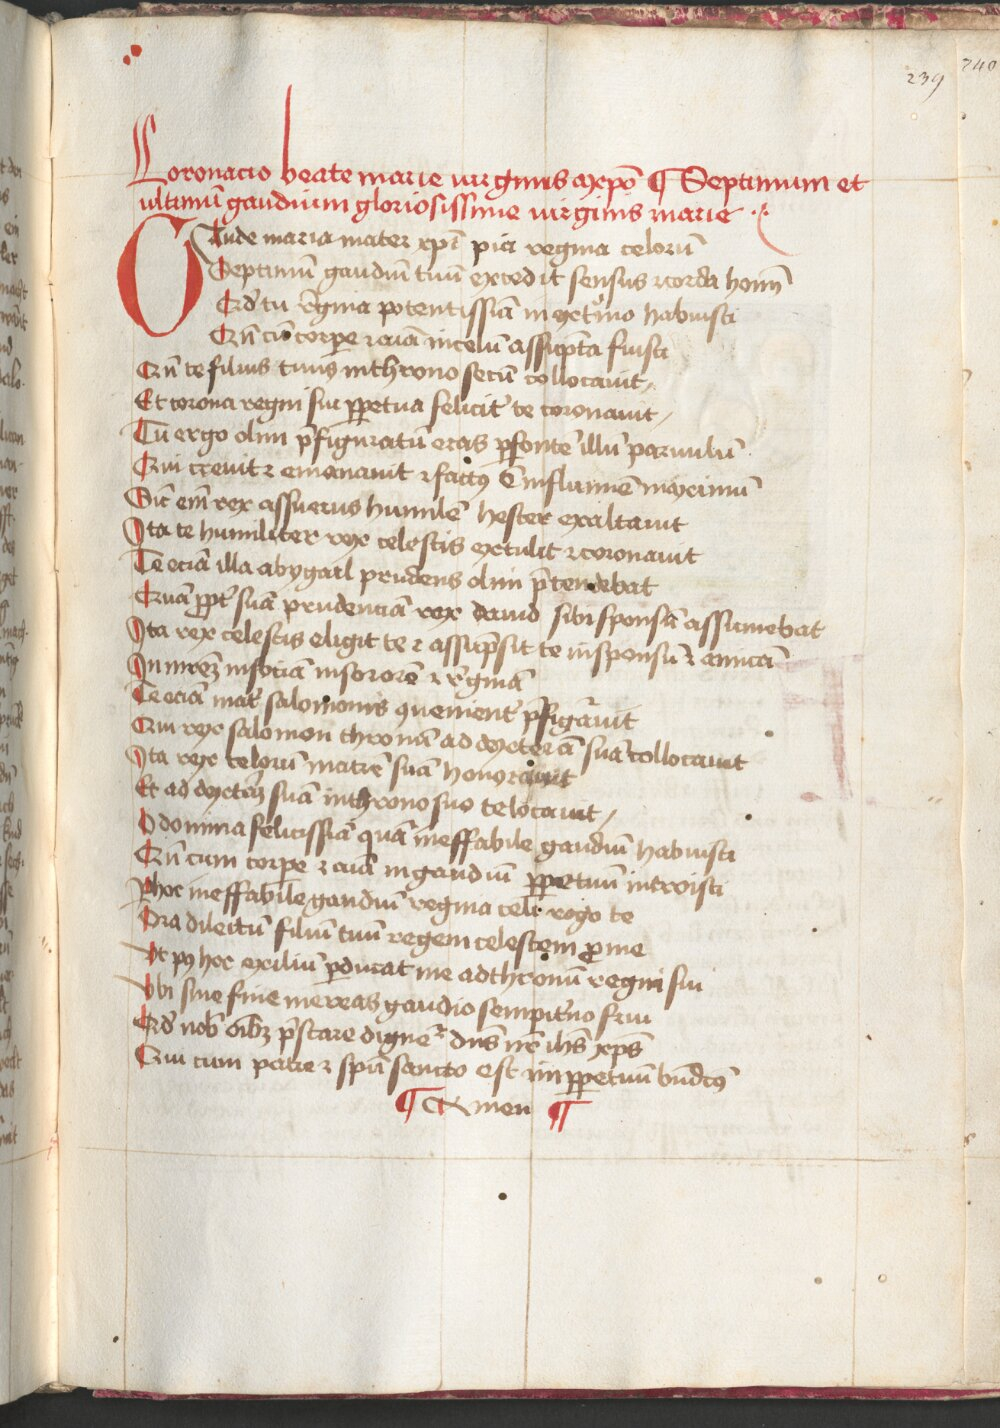 239 240
Coronacio beate marie virginis a xpō ¶ Septimum et
ultimū gaudium gloriosissime virginis marie
Gaude maria mater xpī pia regina celorū
Septimū gaudiū tuū excedit sensus et corda hoīm
Qd' tu regina potentissīa in extmo habuisti
Qn̄ cū corpe et aīa in celū assūpta fuisti
Qn̄ te filius tuus in throno secū collocavit
Et corona regni sui ꝑpetua felicit' te coronavit
Tu ergo olim p̄figuratū eras ꝑ fontē illū parvulū
Qui crevit et emanavit et factꝰ ē in flumē maximū
Sic em̄ rex assuerus humilē hester exaltavit
Ita te humiliter rex celestis extulit et coronavit
Te eciā illa abygail prudens olim p̄tendebat
Quā ꝓpt' suā prudenciā rex david sibi sponsā assumebat
Ita rex celestis eligit te et assūpsit te in sponsā et amicā
In mrēꝫ in sociā in sororē et reginā
Te eciā mat' salomonis ꝯvenient' p̄figuravit
Qui rex salomon thronū ad dexterā suā collocavit
Ita rex celorū matrē suā honoravit
Et ad dexterā suā in throno suo te locavit
O domina felicissīa quā ineffabile gaudiū habuisti
Qn̄ cum corpe et aīa in gaudiū ꝑpetuū introisti
Ꝑ hoc ineffabile gaudiū regina celi rogo te
Ora dilectū filiū tuū regem celestem ꝓ me
Ut pꝰ hoc exiliū ꝑducat me ad thronū regni sui
Ubi sine fine merear gaudio sempit'no frui
Qd' nob' oībꝫ p̄stare dignet' dn̄s nr̄ ihs xp̄s
Qui cum patre et spū sancto est in ꝑpetuū bn̄dcꝰ
¶ Amen ¶